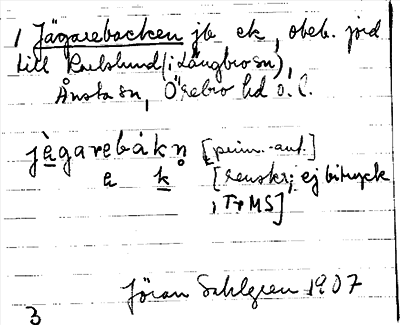 1 Jägarebacken jb ek, obeb. jord
till Karlslund (i Längbro sn),
Ånsta sn, Örebro hd o. l.
jägarebàkn̥ [prim.-ant.]
a k [renskr; ej bitryck
i TrMS]
Jöran Sahlgren 1907
3